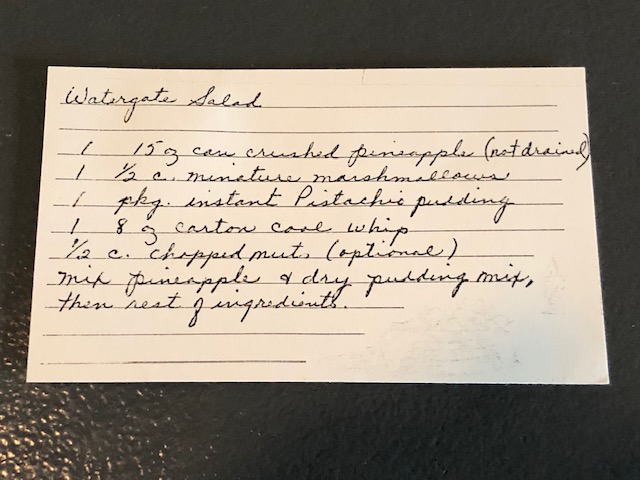 Watergate Salad
1 15 oz can crushed pineapple (not drained)
1 1/2 c. minature marshmallows
1 pkg. instant Pistachio pudding
1 8 oz carton cool whip
1/2 c. chopped nuts (optional)
Mix pineapple & dry pudding mix,
then rest of ingredients.